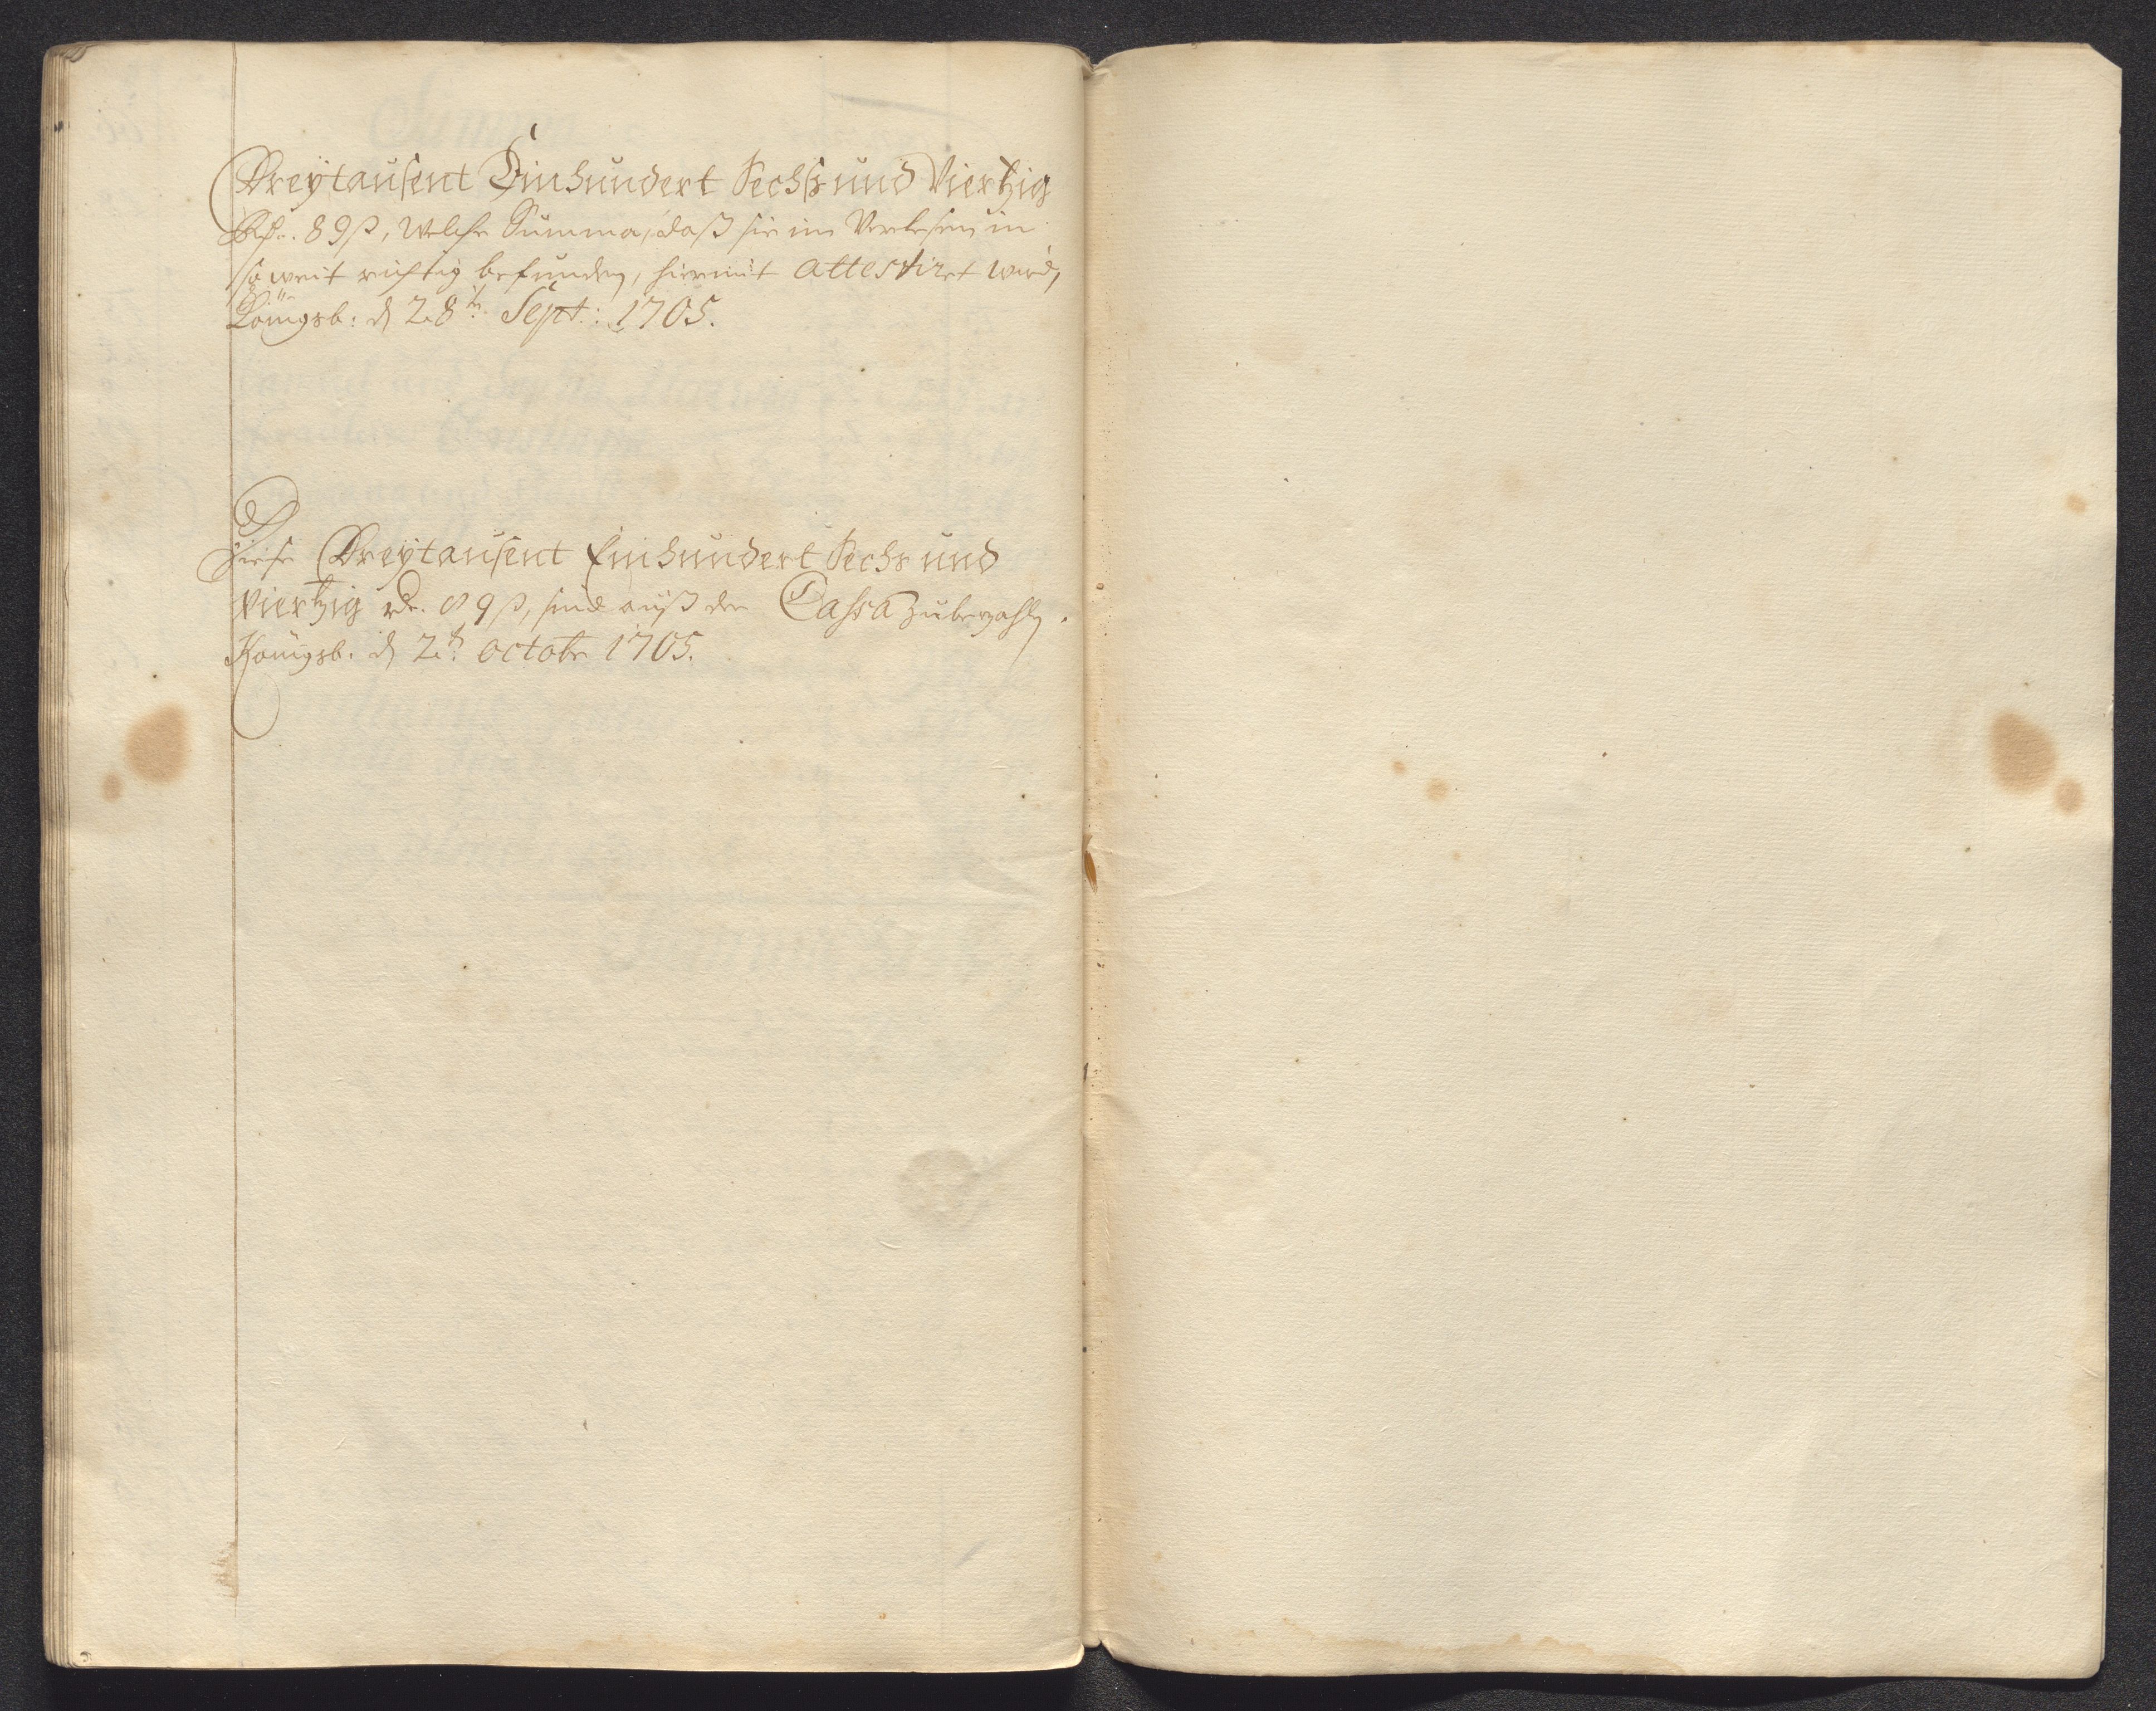 Dreÿtausent Einhundert Sechs und Viertzig
Rd. 89ß, Welche Summa, daß sie im Verlesen in
so weit richtig befunden, hiermit attestiret wird,
Köngsb: d 28t. Sept: 1705.
Diese Dreÿtausent Einhundert Sechs und
Viertzig Rd. 89ß, sind auß der Cassa zubezahlen.
Köngsb. d 2t. octobr 1705.